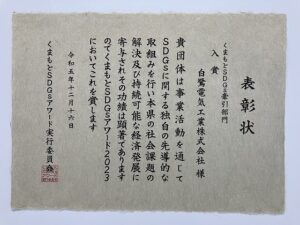 表彰状
くまもとSDGs牽引部門
入賞
白鷺電気工業株式会社 様
貴団体は事業活動を通じて
SDGsに関する独自の先導的な
取組みを行い本県の社会課題の
解決及び持続可能な経済発展に
寄与されその功績は顕著であります
のでくまもとSDGsアワード2023
においてこれを賞します
令和五年十二月十六日
くまもとSDGsアワード実行委員会